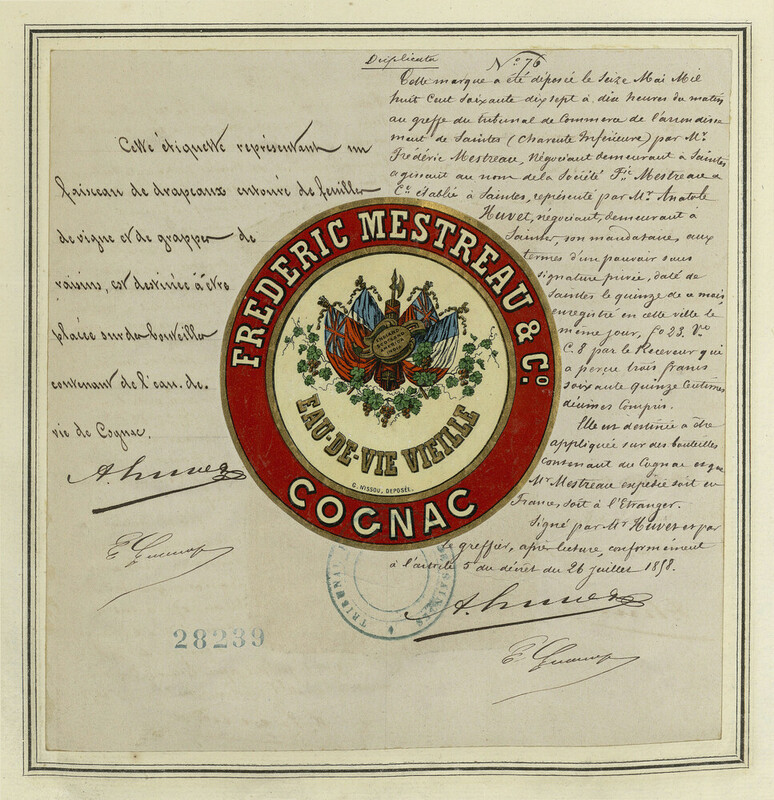 Duplicata
Nº 76
Cette étiquette représentant un
faisceau de drapeaux entouré de feuilles
de vigne et de grappes de
raisins, est destinée à être
placée sur des bouteilles
contenant de l'eau-de-
vie de Cognac.
Cette marque a été déposée le Seize Mai Mil
huit Cent soixante dix sept à dix heures du matin
au greffe du tribunal de Commerce de l'arrondisse
ment de Saintes (Charente Inférieure) par Mr.
Frédéric Mestreau, Négociant demeurant à Saintes
agissant au nom de la Société Fic Mestreau &
Co établie à Saintes, représenté par Mr. Anatole
Huvet, négociant, demeurant à
Saintes, son mandataire, aux
termes d'un pouvoir sous
signature privée, daté de
Saintes le quinze de ce mois,
enregistré en cette ville le
même jour, fo 23. Vo
C. 8 par le Receveur qui
a perçu trois francs
soixante quinze Centimes
décimes Compris.
Elle est destinée à être
appliquée sur des bouteilles
contenant du Cognac et que
Mr Mestreau expédie soit en
France, soit à l'Etranger.
Signé par Mr Huvet et par
le greffier, après lecture, conformément
à l'article 5 du décret du 26 juillet 1858.
FRÉDÉRIC MESTREAU & Cº
EAU-DE-VIE VIEILLE
G. NISSOU, DEPOSÉE.
COGNAC
TRIBUNAL
DE SAINTES
28239